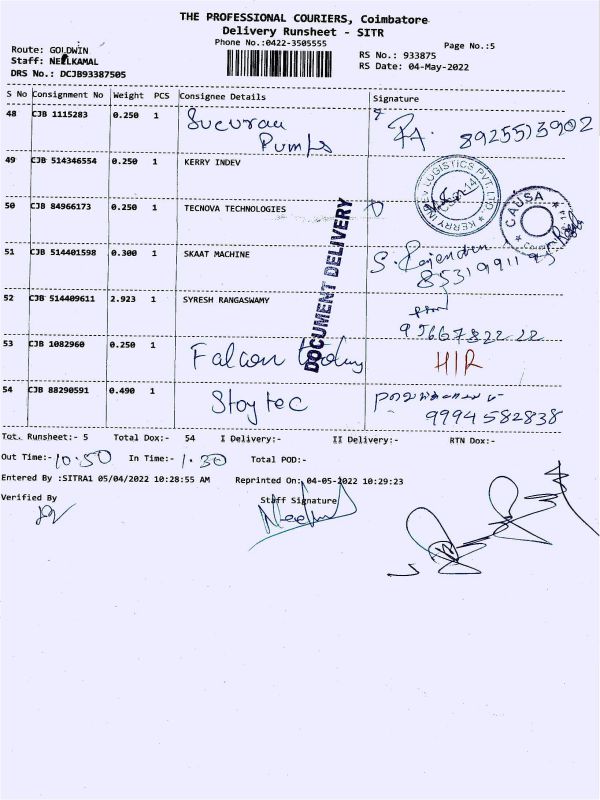 THE PROFESSIONAL COURIERS, Coimbatore
Delivery Runsheet - SITR
Phone No.:0422-3505555
Page No.:5
Route: GOLDWIN
RS No.: 933875
Staff: NEELKAMAL
RS Date: 04-May-2022
DRS No.: DCJB93387505
S No Consignment No Weight PCS Consignee Details Signature
48 CJB 1115283 0.250 1
Pumps
49 CJB 514346554 0.250 1 KERRY INDEV
KERRY INDEV LOGISTICS PVT. LTD.
50 CJB 84966173 0.250 1 TECNOVA TECHNOLOGIES
CAUSA
DOCUMENT DELIVERY
51 CJB 514401598 0.300 1 SKAAT MACHINE
52 CJB 514409611 2.923 1 SYRESH RANGASWAMY
53 CJB 1082960 0.250 1 Falcon H/R
54 CJB 88290591 0.490 1 Stoytec
9994582838
Tot. Runsheet:- 5 Total Dox:- 54 I Delivery:- II Delivery:- RTN Dox:-
Out Time:- 10.50 In Time:- 1.30 Total POD:-
Entered By :SITRA1 05/04/2022 10:28:55 AM Reprinted On: 04-05-2022 10:29:23
Verified By Staff Signature